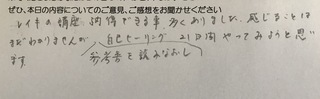 ぜひ、本日の内容についてのご意見、ご感想をお聞かせください
レイキの講座 納得できる事、多くありました。感じることは
まだわかりませんが 自己ヒーリング 21日間 やってみようと思い
ます 参考書を読みなおし